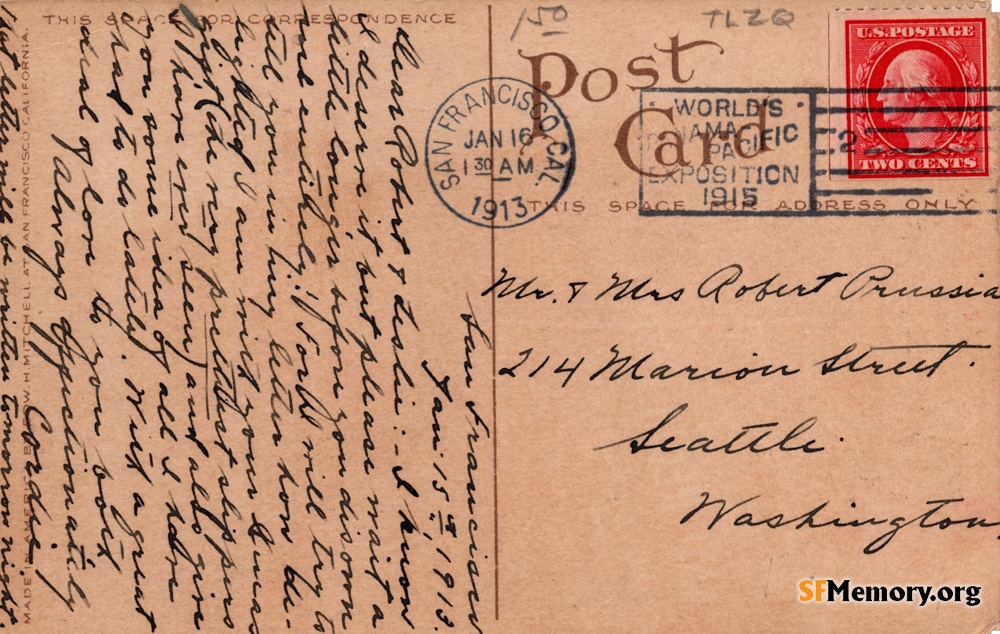 THIS SPACE FOR CORRESPONDENCE
San Francisco
Jan. 15th, 1913.
Dear Robert & Leslie :- I know
I deserve it but please wait a
little longer before you disown
me entirely, for I will try to
tell you in my letter how de-
lighted I am with your Xmas
gift (the very prettiest slippers
I have ever seen) and also give
you some idea of all I have
had to do lately. With a great
deal of love to you both,
Always affectionately
Cordie.
that letter will be written tomorrow night.
MADE IN AMERICA BY EDW. H. MITCHELL AT SAN FRANCISCO CALIFORNIA.
150
TLZQ
Post
Card
THIS SPACE FOR ADDRESS ONLY
SAN FRANCISCO, CAL.
JAN 16
1 30 AM
1913
WORLD'S
PANAMA
PACIFIC
EXPOSITION
1915
2
U.S. POSTAGE
TWO CENTS
Mr. & Mrs Robert Prussia
214 Marion Street.
Seattle.
Washington,
SFMemory.org